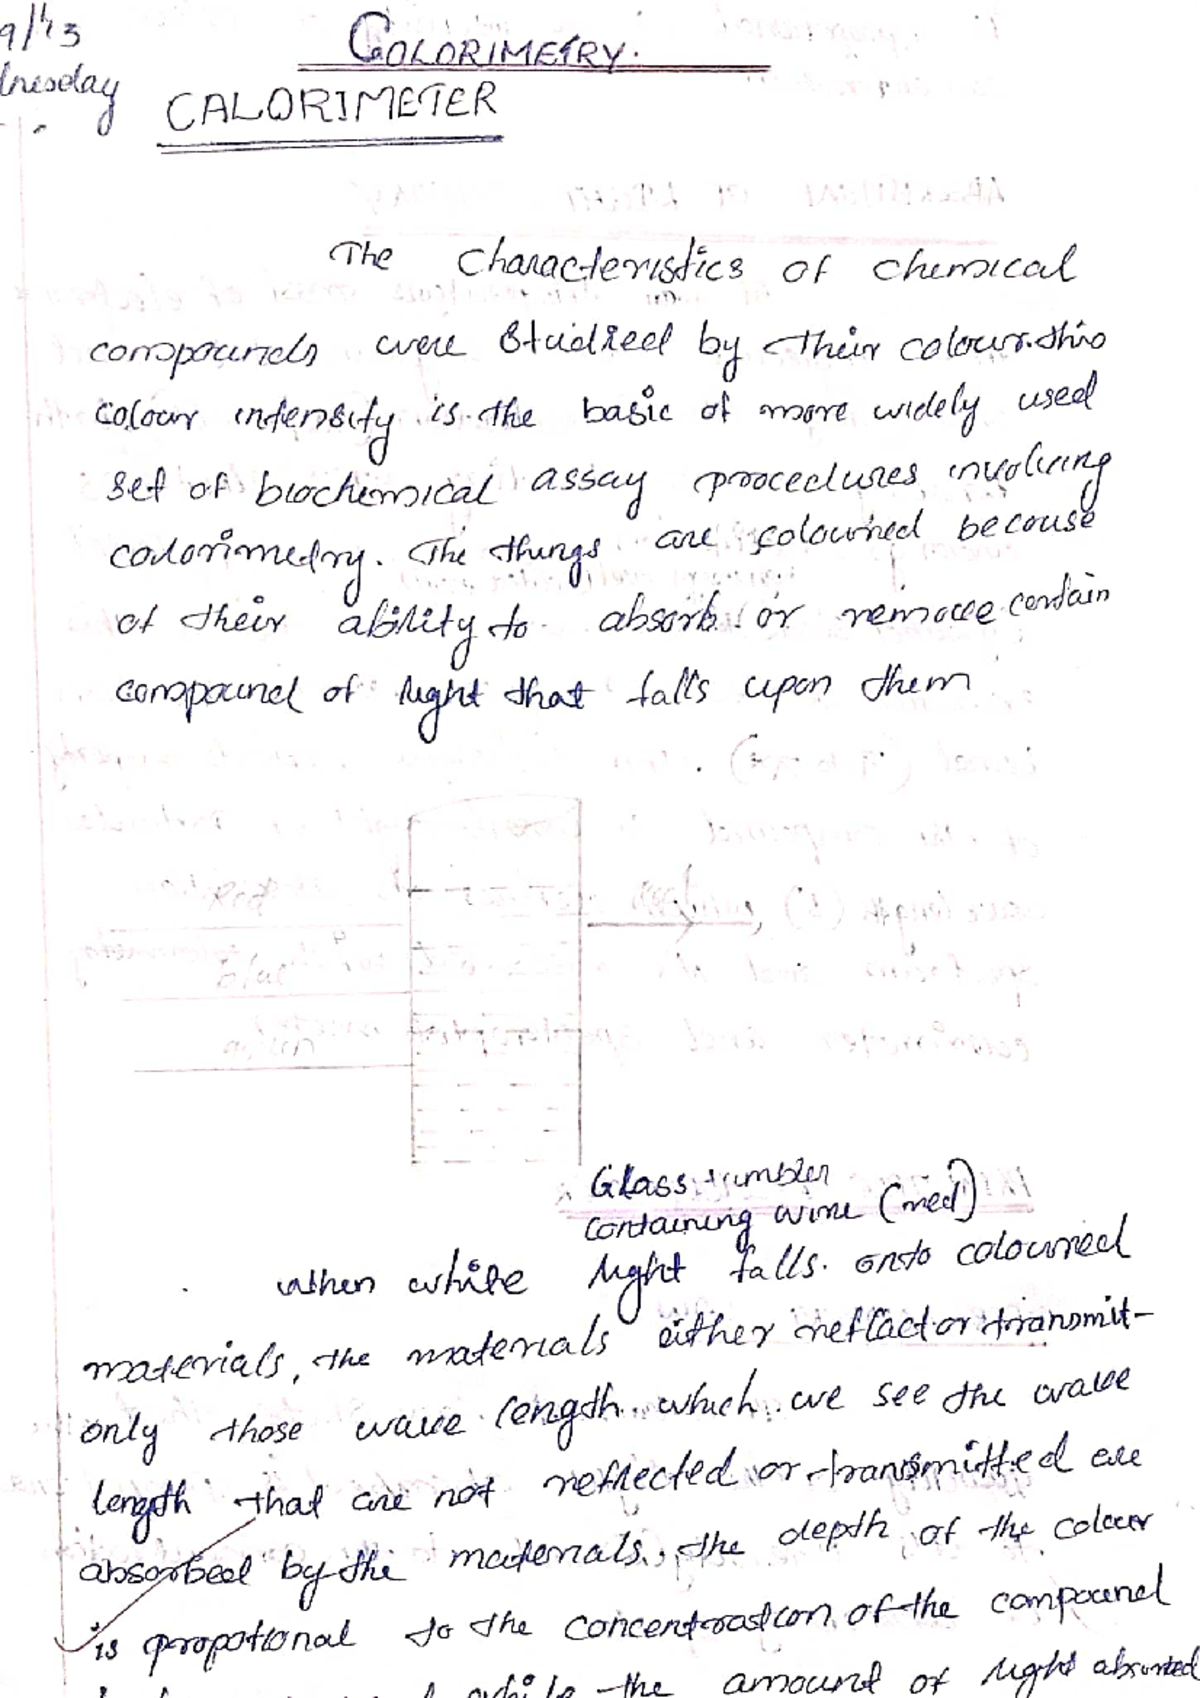 9/13
COLORIMETRY.
nesday
CALORIMETER
The characteristics of chemical
compounds were studied by their colour. this
colour intensity is the basic of more widely used
set of biochemical assay procedures, involving
colorimetry. The things are coloured becouse
of their ability to absorb or remove certain
compound of light that falls upon them
Red
Blue
Glass tumbler
containing wine (red)
when white light falls onto coloured
materials, the materials either reflact or transmit-
only those wave length which we see the wave
length that are not reflected or transmitted are
absorbed by the materials, the depth of the colour
is propotional to the concentration of the compound
while the amount of light absorbed